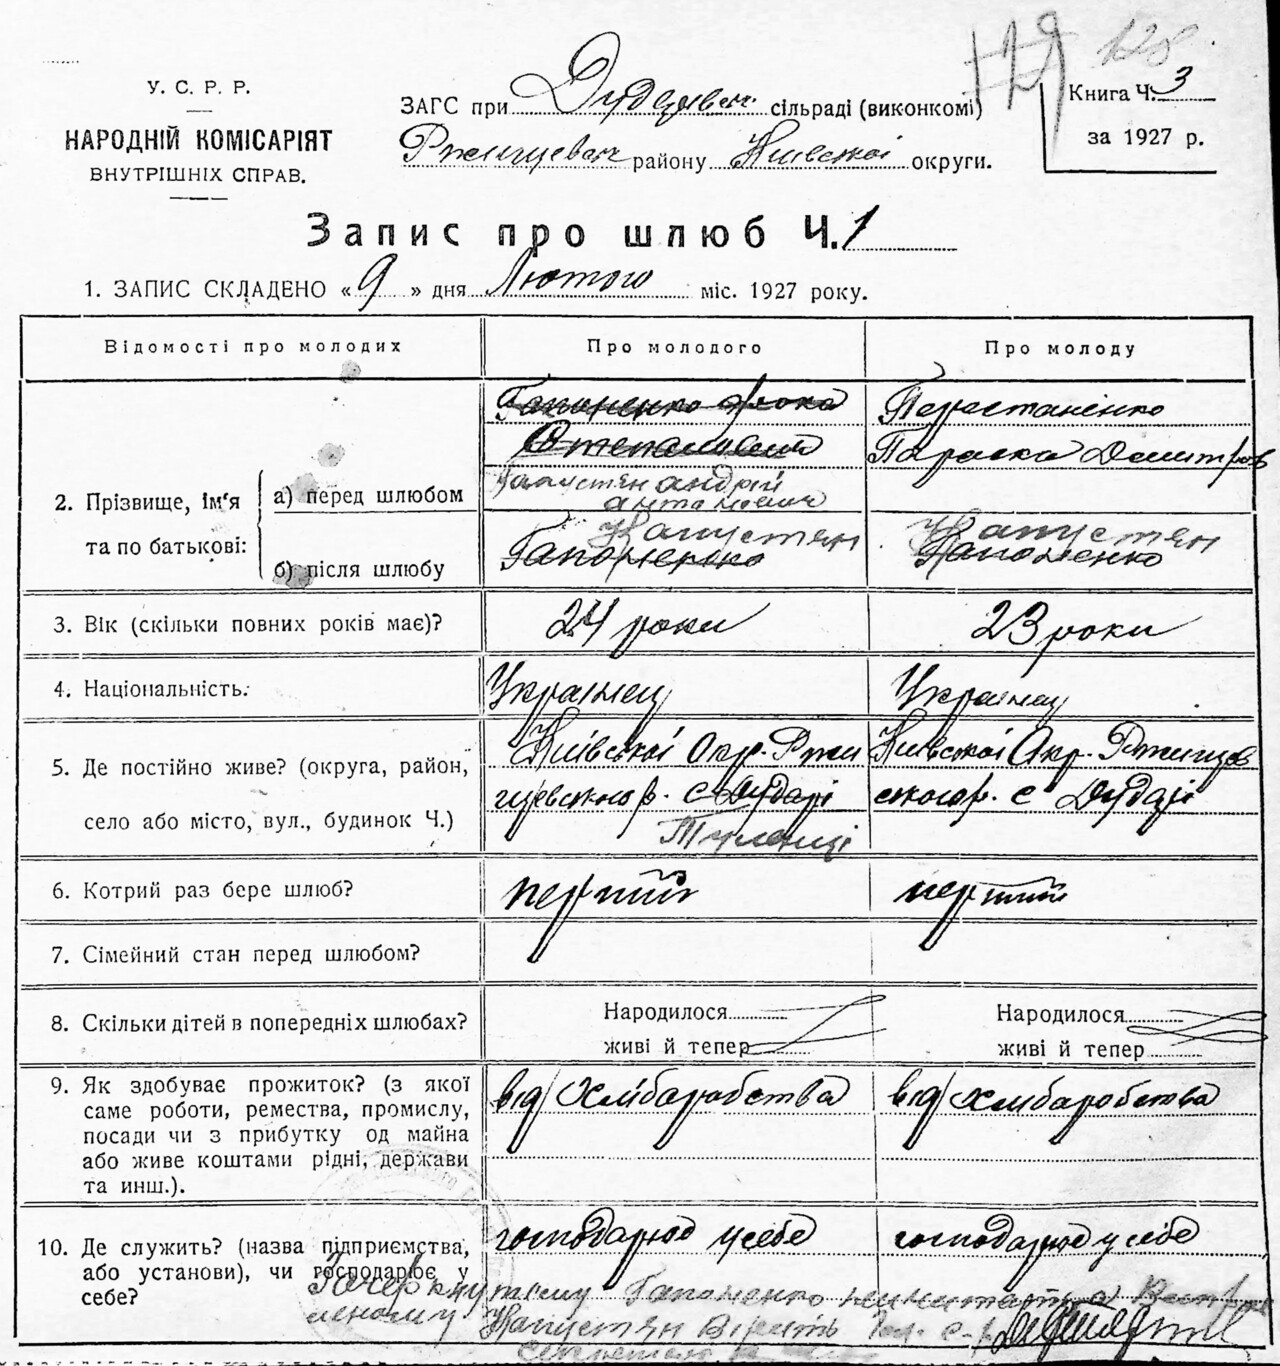 128
У. С. Р. Р.
НАРОДНІЙ КОМІСАРІЯТ
ВНУТРІШНІХ СПРАВ.
ЗАГС при Дударівск. сільраді (виконкомі)
Ржищевськ району Київскої округи.
Книга Ч. 3
за 1927 р.
Запис про шлюб Ч. 1
1. ЗАПИС СКЛАДЕНО « 9 » дня Лютого міс. 1927 року.
Відомості про молодих
Про молодого
Про молоду
2. Прізвище, ім'я та по батькові:
а) перед шлюбом
Гапоненко
Капустян андрій
антонович
Перестаненко
Параска Дмитров
б) після шлюбу
Капустян
Гапоненко
Капустян
Гапоненко
3. Вік (скільки повних років має)?
24 роки
23 роки
4. Національність:
Українец
Українец
5. Де постійно живе? (округа, район,
село або місто, вул., будинок Ч.)
Київської Окр. Ржи
щевского р. с Дударі
Тулинці
Київскої Окр. Ржищев
ского р. с Дударі
6. Котрий раз бере шлюб?
перший
перший
7. Сімейний стан перед шлюбом?
8. Скільки дітей в попередніх шлюбах?
Народилося
живі й тепер
Народилося
живі й тепер
9. Як здобуває прожиток? (з якої
саме роботи, ремества, промислу,
посади чи з прибутку од майна
або живе коштами рідні, держави
та инш.).
від Хлібаробства
від Хлібаробства
10. Де служить? (назва підприємства,
або установи), чи господарює у
себе?
господарюю у себе
господарюю у себе
Гапоненко
Капустян Вірить Гол. с-р